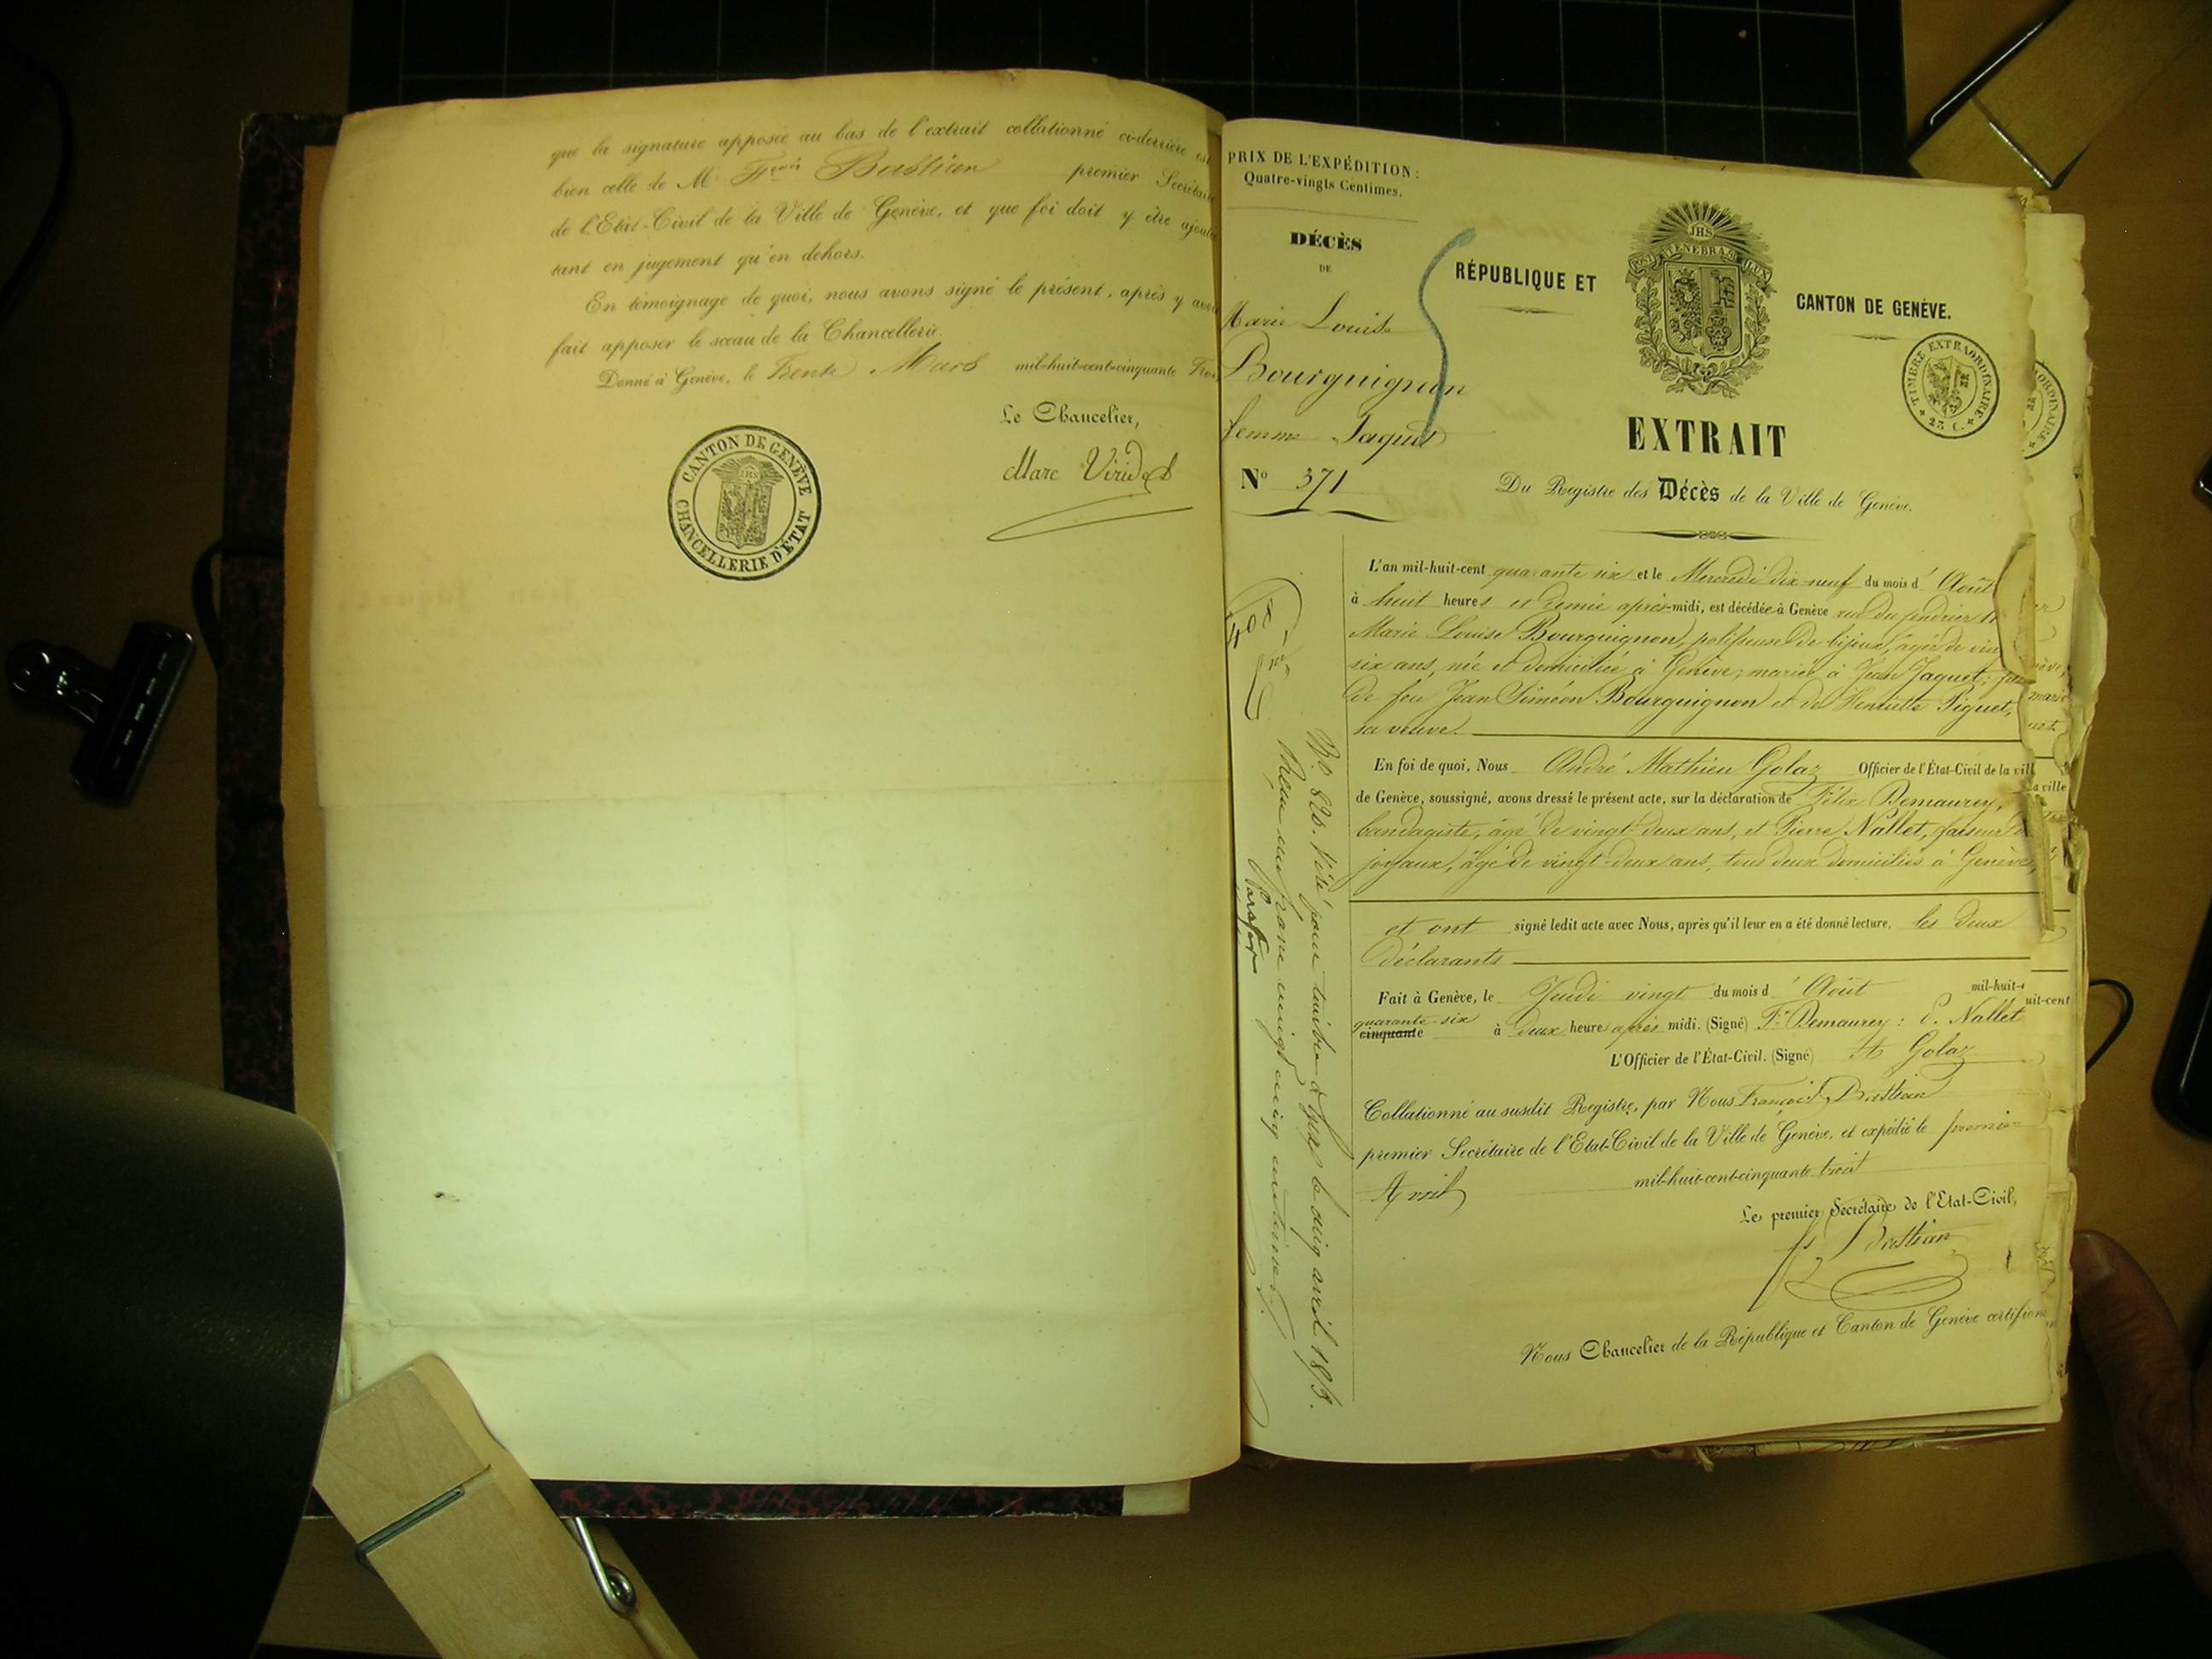 que la signature apposée au bas de l'extrait collationné ci-derrière est
bien celle de Mr Fçois Bastian premier Secrétaire
de l'Etat-Civil de la Ville de Genève, et que foi doit y être ajoutée
tant en jugement qu'en dehors.
En témoignage de quoi, nous avons signé le présent, après y avoir
fait apposer le sceau de la Chancellerie.
Donné à Genève, le Trente Mars mil-huit-cent-cinquante Trois
Le Chancelier,
Marc Viridet
CANTON DE GENÈVE
CHANCELLERIE D'ÉTAT
PRIX DE L'EXPÉDITION:
Quatre-vingts Centimes.
DÉCÈS
DE
Marie Louise
Bourguignon
femme Jaquet
No 371
JHS
POST TENEBRAS LUX
RÉPUBLIQUE ET
CANTON DE GENÈVE.
TIMBRE EXTRAORDINAIRE
25 C.
ORDINAIRE
EXTRAIT
Du Registre des Décès de la Ville de Genève.
L'an mil-huit-cent quarante six et le Mercredi dix-neuf du mois d'Août
à huit heures et demie après-midi, est décédée à Genève rue du
Marie Louise Bourguignon, polisseuse de bijoux, âgée de vin
six ans, née et domiciliée à Genève; mariée à Jean Jaquet;
de feu Jean Siméon Bourguignon et de Henriette Piguet,
sa veuve.
En foi de quoi, Nous André Mathieu Golaz Officier de l'État-Civil de la vill
de Genève, soussigné, avons dressé le présent acte, sur la déclaration de Félix Demaurey,
bandagiste, âgé de vingt-deux ans, et Pierre Nallet, faiseur de
joyaux, âgé de vingt-deux ans, tous deux domiciliés à Genève,
et ont signé ledit acte avec Nous, après qu'il leur en a été donné lecture, les deux
déclarants
Fait à Genève, le Jeudi vingt du mois d'Août mil-huit-c
quarante-six
cinquante à deux heures après midi. (Signé) Fx Demaurey: P. Nallet
L'Officier de l'État-Civil. (Signé) A Golaz
Collationné au susdit Registre, par Nous François Bastian
premier Secrétaire de l'Etat-Civil de la Ville de Genève, et expédié le premier
Avril mil-huit-cent-cinquante trois
Le premier Secrétaire de l'Etat-Civil,
fs Bastian
Nous Chancelier de la République et Canton de Genève certifions
No 820. Visé pour timbre à Gex le cinq avril 1853.
Reçu un franc vingt cinq centimes